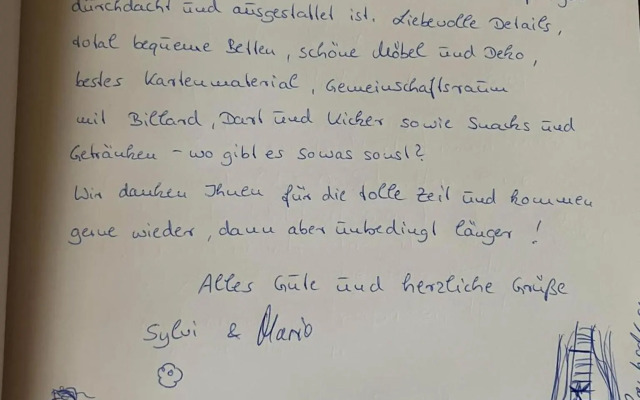 durchdacht und ausgestattet ist. Liebevolle Details,
total bequeme Betten, schöne Möbel und Deko,
bestes Kartenmaterial, Gemeinschaftsraum
mit Billard, Dart und Kicker sowie Snacks und
Getränken - wo gibt es sowas sonst?
Wir danken Ihnen für die tolle Zeit und kommen
gerne wieder, dann aber unbedingt länger!
Alles Gute und herzliche Grüße
Sylvi & Mario